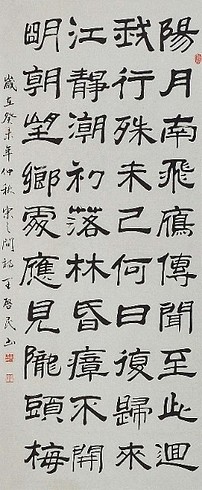 陽月南飛鴈傳聞至此迴
我行殊未已何日復歸來
江靜潮初落林昏瘴不開
明朝望鄉處應見隴頭梅
歲在癸未年仲秋宋之問詩王啓民書